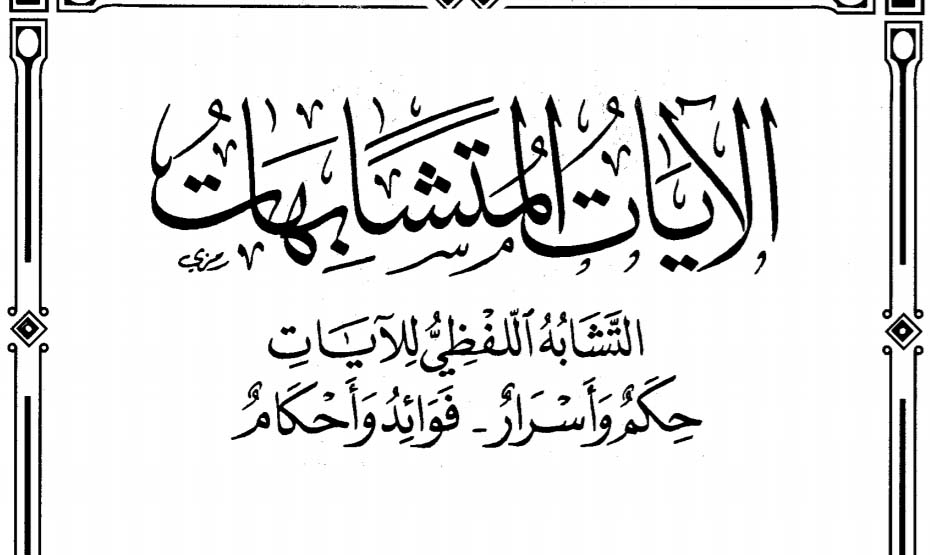 الآيَاتُ المُتَشَابِهَاتُ
رمزي
التَّشَابُهُ ٱللَّفْظِيُّ لِلآيَاتِ
حِكَمٌ وَأَسْرَارٌ - فَوَائِدُ وَأَحْكَامٌ